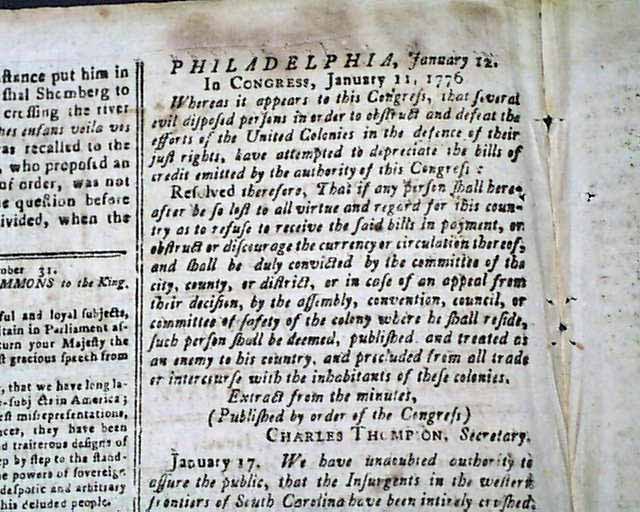 stance put him in
shal Shomberg to
crossing the river
hes enfans voila vos
was recalled to the
, who proposed an
of order, was not
e question before
ivided, when the
ober 31.
MMONS to the King.
ful and loyal subjects,
itain in Parliament as-
turn your Majesty the
st gracious speech from
, that we have long la-
-subjects in America;
est misrepresentations,
nces, they have been
d traiterous designs of
ep by step to the stand-
e powers of sovereign
despotic and arbitrary
his deluded people.
PHILADELPHIA, January 12.
In CONGRESS, January 11, 1776
Whereas it appears to this Congress, that several
evil disposed persons in order to obstruct and defeat the
efforts of the United Colonies in the defence of their
just rights, have attempted to depreciate the bills of
credit emitted by the authority of this Congress:
Resolved therefore, That if any person shall here-
after be so lost to all virtue and regard for this coun-
try as to refuse to receive the said bills in payment, or
obstruct or discourage the currency or circulation thereof,
and shall be duly convicted by the committee of the
city, county, or district, or in case of an appeal from
their decision, by the assembly, convention, council, or
committee of safety of the colony where he shall reside,
such person shall be deemed, published and treated as
an enemy to his country, and precluded from all trade
or intercourse with the inhabitants of these colonies.
Extract from the minutes,
(Published by order of the Congress)
CHARLES THOMPSON, Secretary.
January 17. We have undoubted authority to
assure the public, that the Insurgents in the western
frontiers of South Carolina have been intirely crushed.